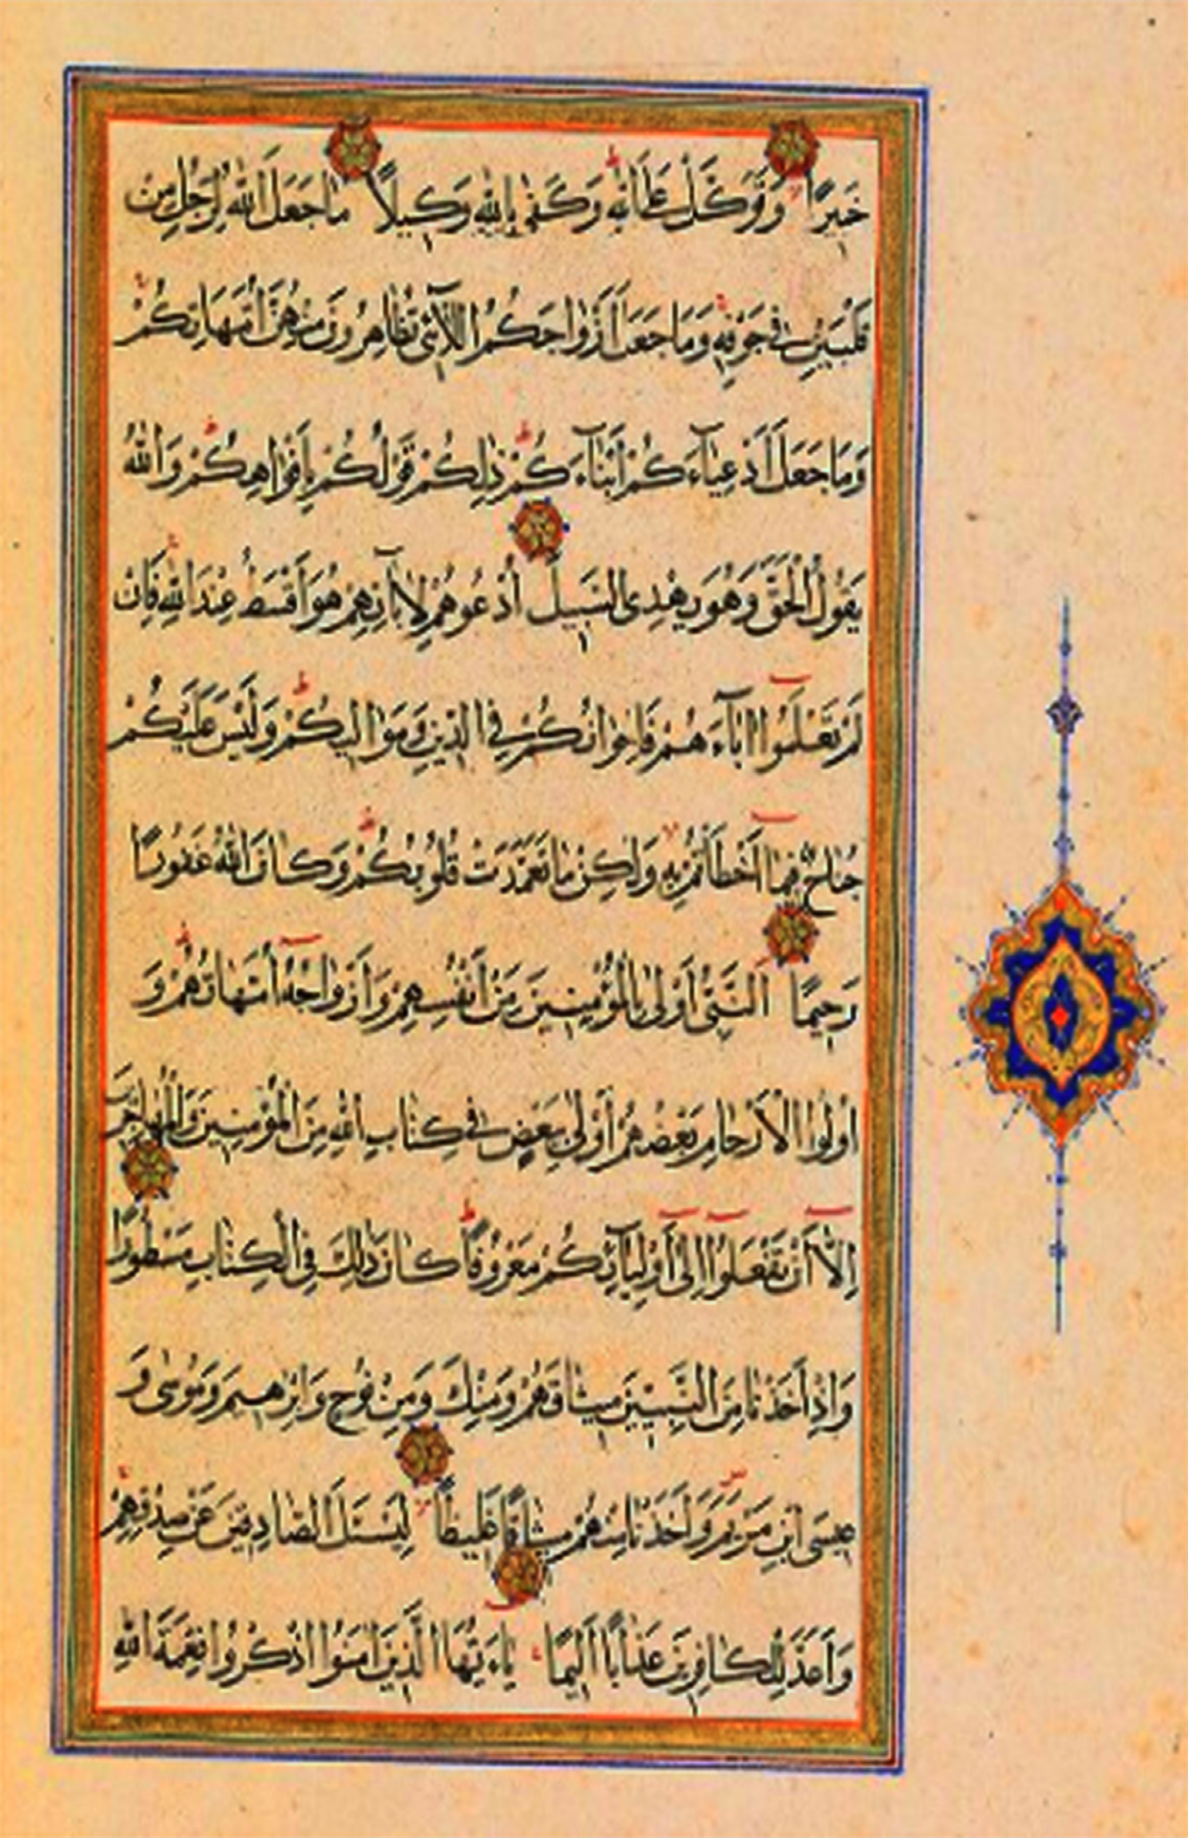 خَبِيرًا وَتَوَكَّلْ عَلَى اللهِ وَكَفٰى بِاللهِ وَكِيلًا مَا جَعَلَ اللهُ لِرَجُلٍ مِنْ
قَلْبَيْنِ فِي جَوْفِهِ وَمَا جَعَلَ أَزْوَاجَكُمُ اللَّائِي تُظَاهِرُونَ مِنْهُنَّ أُمَّهَاتِكُمْ
وَمَا جَعَلَ أَدْعِيَاءَكُمْ أَبْنَاءَكُمْ ذٰلِكُمْ قَوْلُكُمْ بِأَفْوَاهِكُمْ وَاللهُ
يَقُولُ الْحَقَّ وَهُوَ يَهْدِي السَّبِيلَ أُدْعُوهُمْ لِآبَائِهِمْ هُوَ أَقْسَطُ عِنْدَ اللهِ فَإِنْ
لَمْ تَعْلَمُوا اٰبَاءَهُمْ فَإِخْوَانُكُمْ فِي الدِّينِ وَمَوَالِيكُمْ وَلَيْسَ عَلَيْكُمْ
جُنَاحٌ فِيمَا أَخْطَأْتُمْ بِهِ وَلٰكِنْ مَا تَعَمَّدَتْ قُلُوبُكُمْ وَكَانَ اللهُ غَفُورًا
رَحِيمًا النَّبِيُّ أَوْلٰى بِالْمُؤْمِنِينَ مِنْ أَنْفُسِهِمْ وَأَزْوَاجُهُ أُمَّهَاتُهُمْ وَ
أُولُوا الْأَرْحَامِ بَعْضُهُمْ أَوْلٰى بِبَعْضٍ فِي كِتَابِ اللهِ مِنَ الْمُؤْمِنِينَ وَالْمُهَاجِرِينَ
إِلَّا أَنْ تَفْعَلُوا إِلٰى أَوْلِيَائِكُمْ مَعْرُوفًا كَانَ ذٰلِكَ فِي الْكِتَابِ مَسْطُورًا
وَإِذْ أَخَذْنَا مِنَ النَّبِيِّينَ مِيثَاقَهُمْ وَمِنْكَ وَمِنْ نُوحٍ وَإِبْرٰهِيمَ وَمُوسٰى وَ
عِيسَى ابْنِ مَرْيَمَ وَأَخَذْنَا مِنْهُمْ مِيثَاقًا غَلِيظًا لِيَسْئَلَ الصَّادِقِينَ عَنْ صِدْقِهِمْ
وَأَعَدَّ لِلْكَافِرِينَ عَذَابًا أَلِيمًا يَاءَيُّهَا الَّذِينَ اٰمَنُوا اذْكُرُوا نِعْمَةَ اللهِ